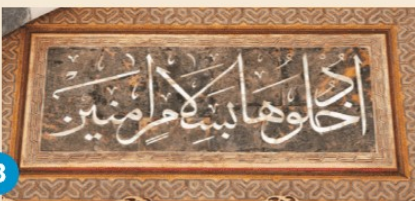 ادخلوها بسلام امنين
3